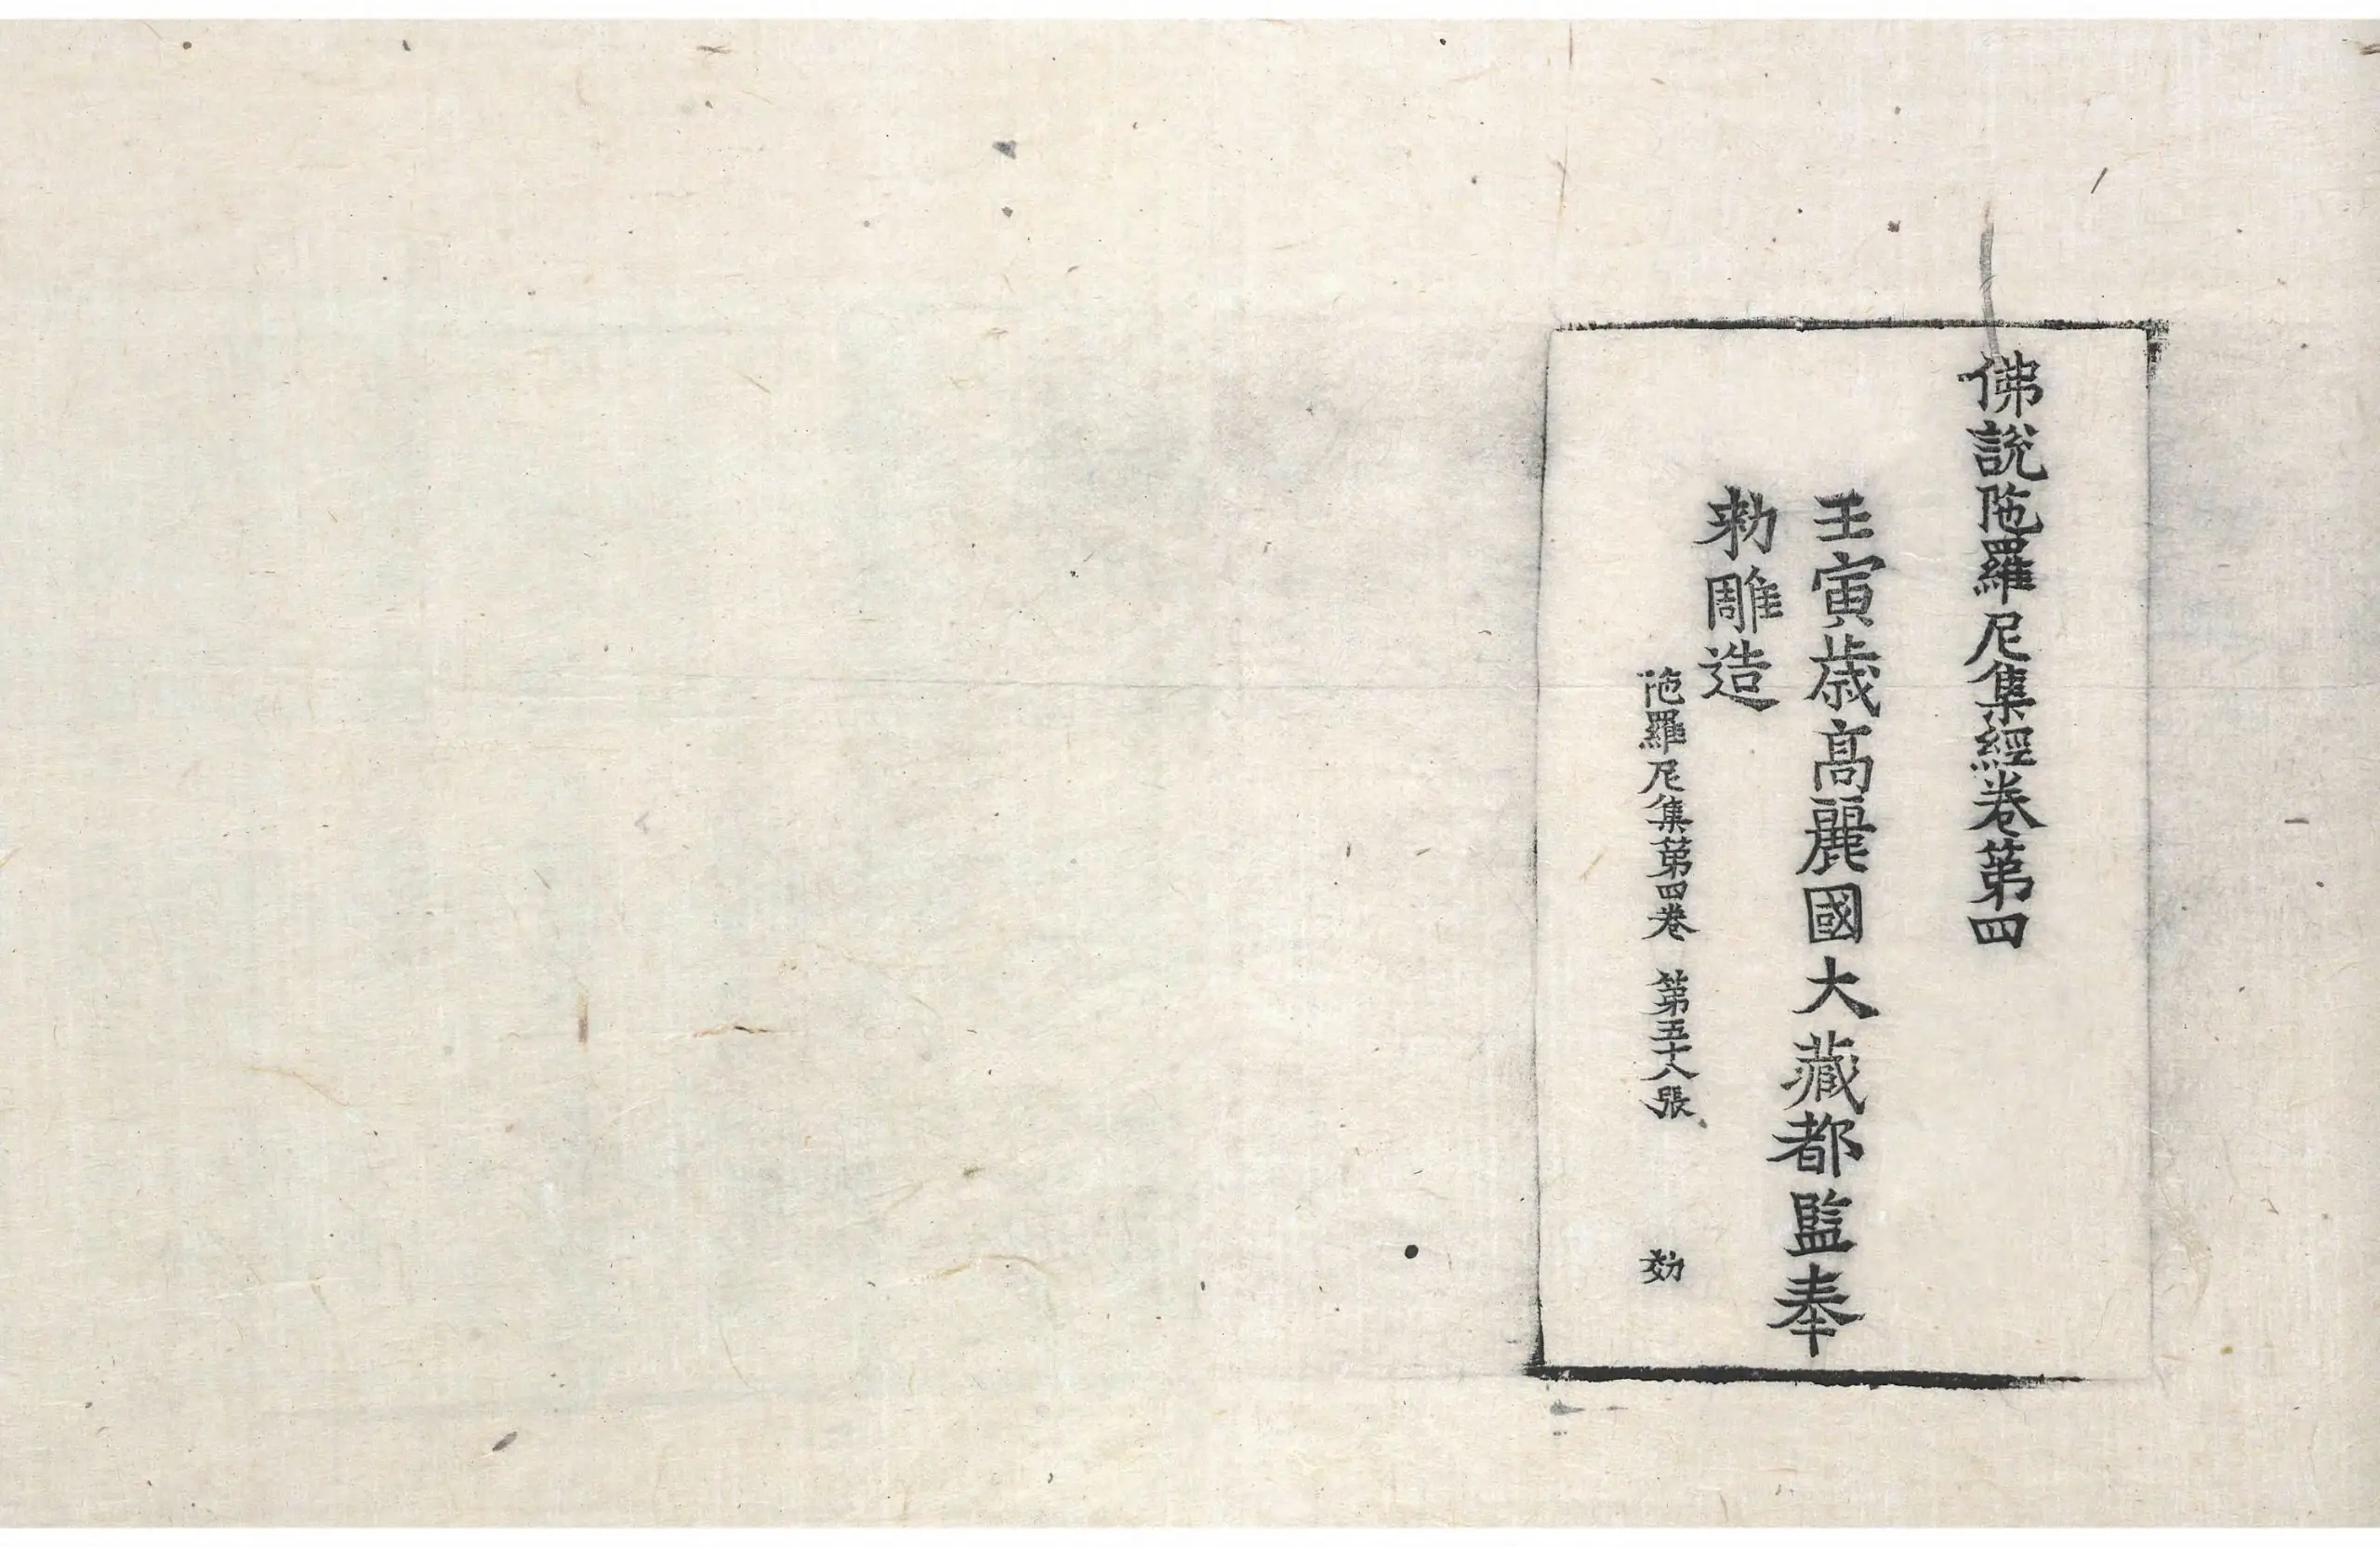 佛說陁羅尼集經卷第四
壬寅歲高麗國大藏都監奉
勑雕造
陁羅尼集第四卷 第五十八張 効